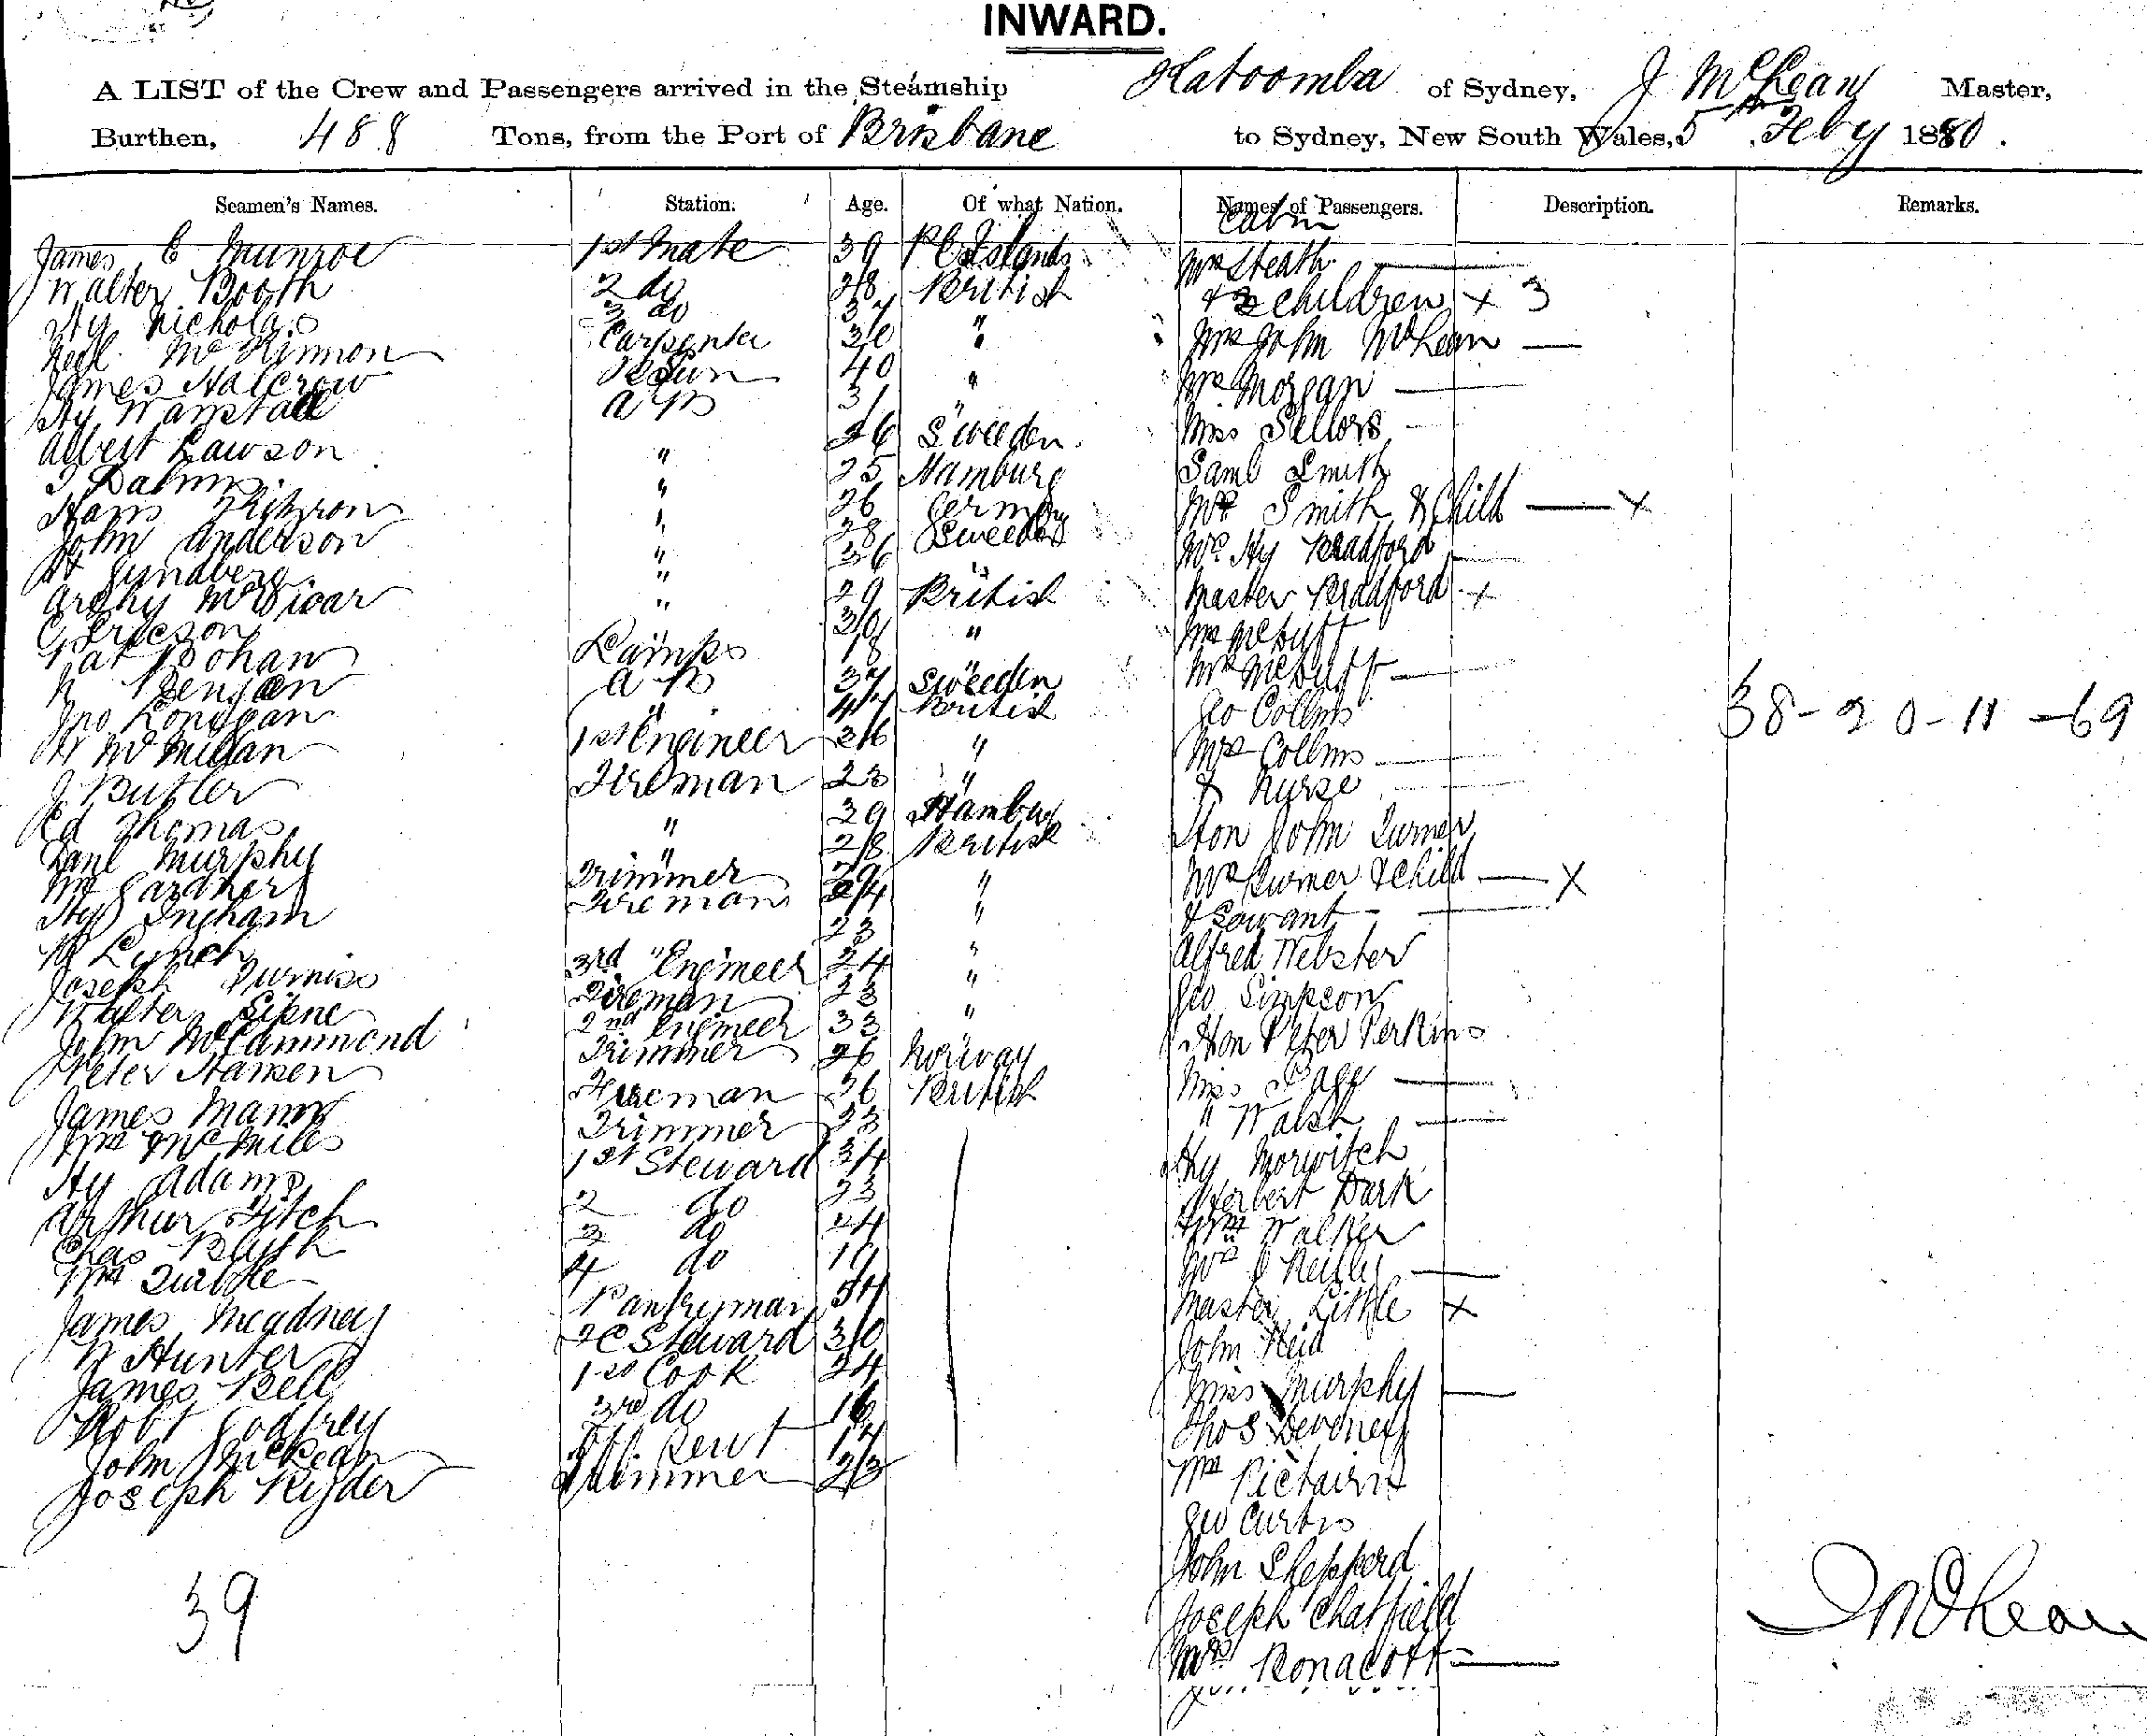 INWARD.
A LIST of the Crew and Passengers arrived in the Steamship Katoomba of Sydney, J McLean Master,
Burthen, 488 Tons, from the Port of Brisbane to Sydney, New South Wales, 5th Feby 1880.
Seamen's Names. Station. Age. Of what Nation. Names of Passengers. Description. Remarks.
Cabin
James C Munroe 1st Mate 39 Islands Mrs Heath
Walter Booth 2 do 28 British & 3 children x 3
Hy Nicholas 3 do 37 " Mrs John McLean
Neil McKinnon Carpenter 30 " Mrs Morgan
James Halcrow Bsun 40 " Miss Sellors
Hy Wanstall AB 31 " Saml Smith
Albert Lawson " 26 Sweeden Mrs Smith & Child x
Dahm " 25 Hamburg Mrs Hy Bradford
Hans " 26 Germany Master Bradford x
John Anderson " 28 Sweeden Mr
Lundberg " 36 " Mrs
Archy McVicar " 29 British Geo Collins
C Ericson " 30 " Mrs Collins
Pat Bohan Lamps 18 " & Nurse
Bengsen AB 37 Sweeden Hon John Turner
Jno Lonegan " 47 British Mrs Turner & Child x
McMillan 1st Engineer 36 " & Servant
J Butler Fireman 23 " Alfred Webster
Ed Thomas " 39 Hamburg Geo Simpson
Danl Murphy " 28 British Hon Peter Perkins
Wm Gardner Trimmer 29 " Miss Page
Hy Ingham Fireman 24 " " Walsh
Lynch " 23 " Hy Morwitch
Joseph Furniss 3rd Engineer 24 " Herbert Dark
Walter Fireman 23 " Wm Walker
John McCammond 2nd Engineer 33 " Mrs J Reilly
Peter Hansen Trimmer 26 Norway Master Little x
James Mann Fireman 36 British John Reid
Wm McMiles Trimmer 23 Miss Murphy
Hy Adams 1st Steward 34 Thos Devoney
Arthur Fitch 2 do 23 Wm Pictairn
Chas Blyth 3 do 24 Geo Curtis
Wm 4 do 19 John Shepperd
James Meadney Pantryman 54 Joseph Chatfield
W Hunter 2C Steward 30 Mrs Bonacott
James Bell 1st Cook 24
Robt Godfrey 3rd do 16
John 17
Joseph Ryder Trimmer 23
38-20-11-69
39
J McLean